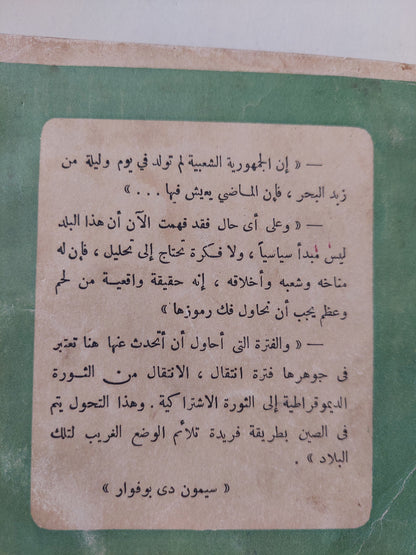 — « إن الجمهورية الشعبية لم تولد فى يوم وليلة من
زبد البحر ، فإن الماضي يعيش فيها . . . »
— « وعلى أى حال فقد فهمت الآن أن هذا البلد
ليس مبدأ سياسياً ، ولا فكرة تحتاج إلى تحليل ، فإن له
مناخه وشعبه وأخلاقه ، إنه حقيقة واقعية من لحم
وعظم يجب أن نحاول فك رموزها »
— « والفترة التى أحاول أن أتحدث عنها هنا تعتبر
فى جوهرها فترة انتقال ، الانتقال من الثورة
الديموقراطية إلى الثورة الاشتراكية . وهذا التحول يتم
فى الصين بطريقة فريدة تلائم الوضع الغريب لتلك
البلاد » .
« سيمون دى بوفوار »